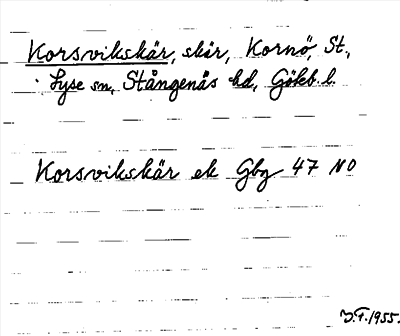 Korsvikskär, skär, Kornö, St.,
Lyse sn, Stångenäs hd, Göteb. l.
Korsvikskär ek Gbg 47 NO
J.F. 1955.